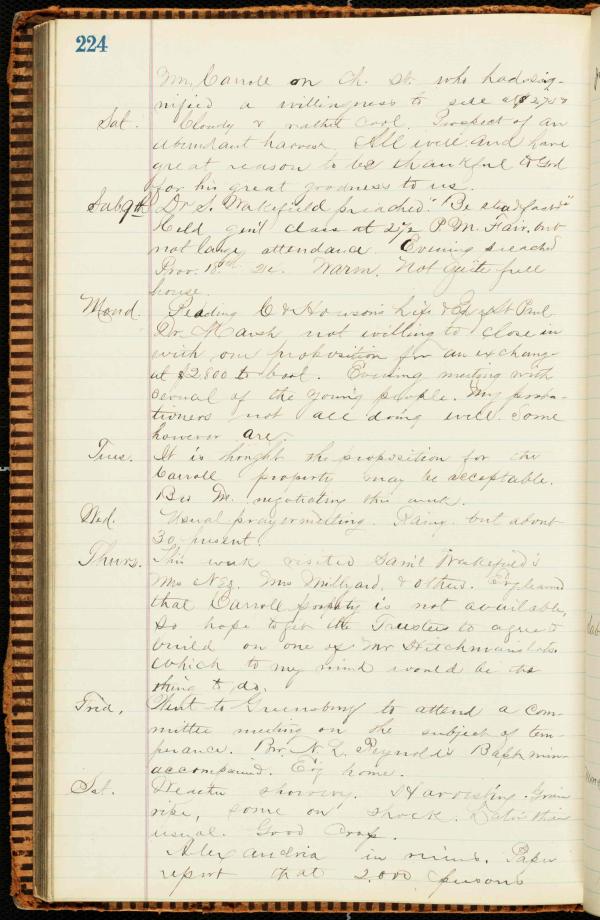 224
Mr. Carroll on Ch. St. who had sig-
nified a willingness to sell at $2750
Sat. Cloudy & rather cool. Prospect of an
abundant harvest. All well and have
great reason to be thankful to God
for his great goodness to us.
Sab 9th Dr S. Wakefield preached. "Be steadfast"
Held gen'l class at 2 1/2 P.M. Fair, but
not large attendance. Evening preached
Prov. 18th 24. Warm. Not quite full
house.
Mond. Reading C & Howson's Life & Ep of St Paul
Dr. Marsh not willing to close in
with our proposition for an exchange
at $2,800 to boot. Evening meeting with
several of the young people. My proba-
tioners not all doing well. Some
however are.
Tues. It is thought the proposition for the
Carroll property may be acceptable.
Bro M. negotiating this week.
Wed. Usual prayermeeting. Rainy. but about
30 present.
Thurs. This week visited Sam'l Wakefield's
Mrs Mrs Millyard, & others. Evg learned
that Carroll property is not available,
so hope to get the Trustees to agree to
build on one of Mr Hitchman's lots
which to my mind would be the
thing to do.
Frid. Went to Greensburg to attend a com-
mittee meeting on the subject of tem-
perance. Bro. N. L. Reynolds Bapt. min.
accompanied. Evg home.
Sat. Weather showery. Harvesting. Grain
ripe, some on shock. Later than
usual. Good crop.
Alexandria in ruins. Paper
report that 2,000 persons